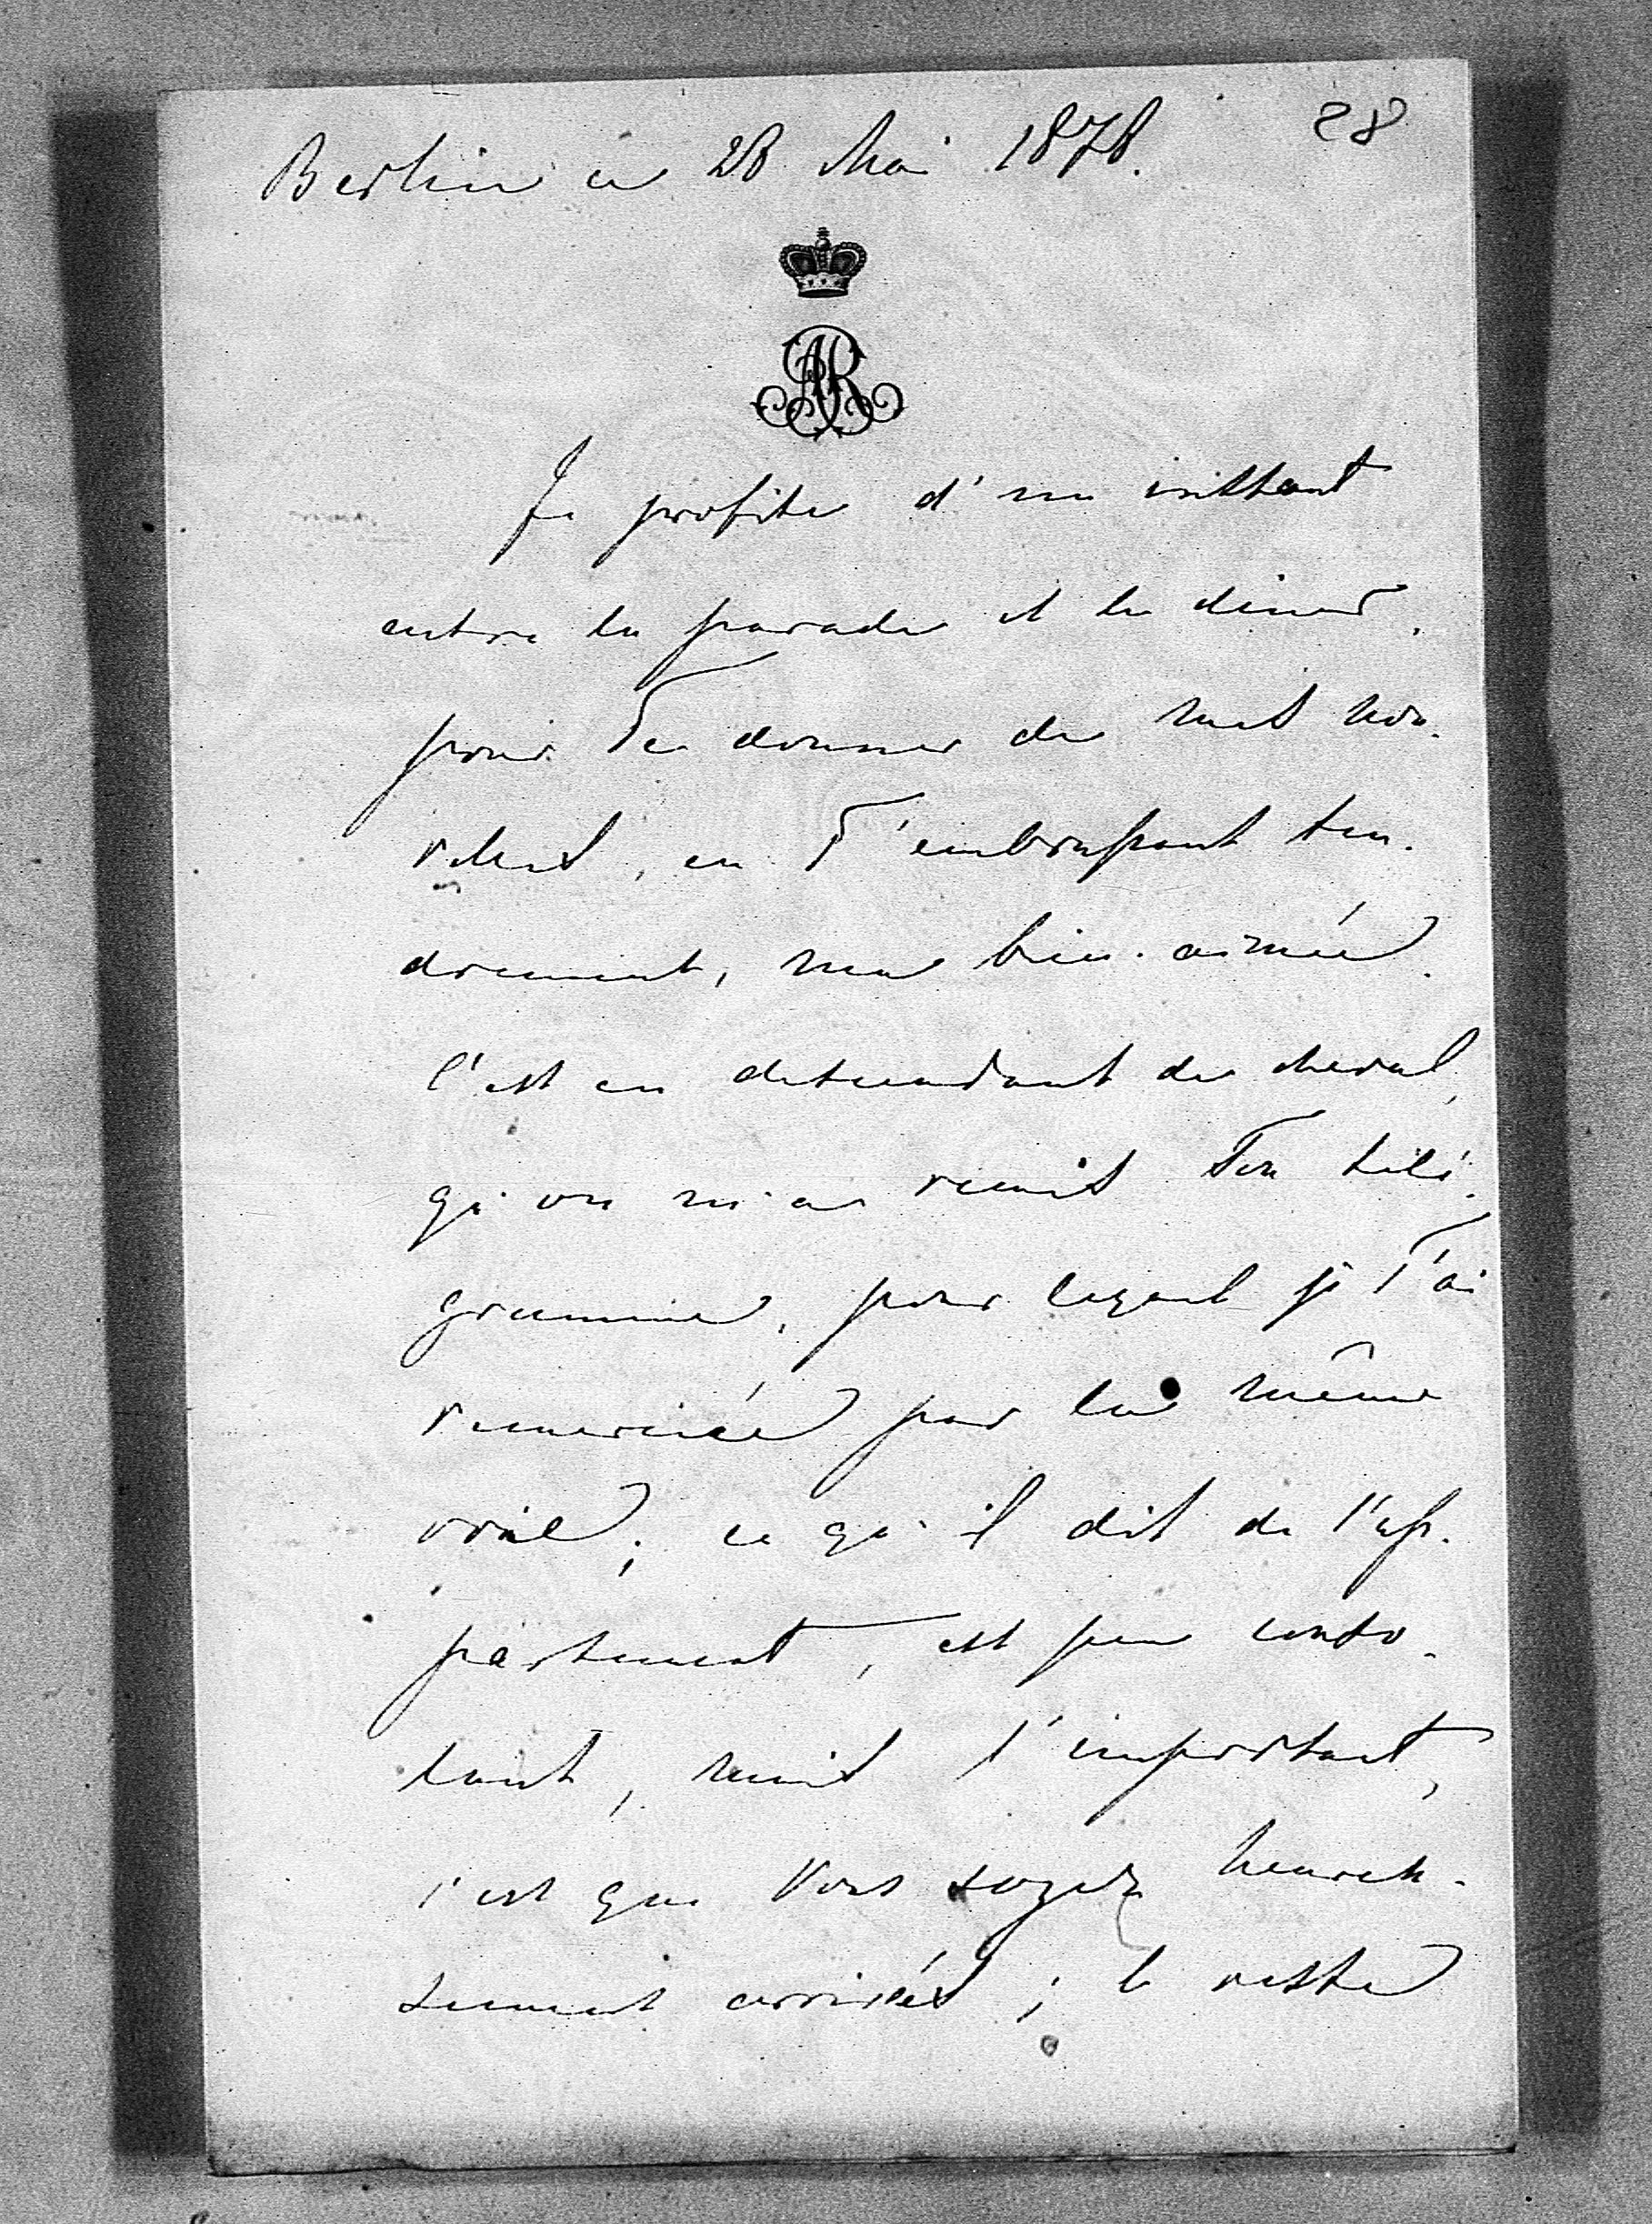 Berlin ce 28 Mai 1878.
28
AR
Je profite d'un instant
entre la parade et le diner,
pour Te donner de mes nou-
velles, en T'embrassant ten-
drement, ma bien-aimée.
C'est en descendant de cheval,
qu'on m'a remis Ton télé-
gramme, pour lequel je T'ai
remerciée par la même
voie; ce qu'il dit de l'ap-
partement, est peu conso-
lant, mais l'important,
c'est que Vous soyez heureu-
sement arrivées; le reste